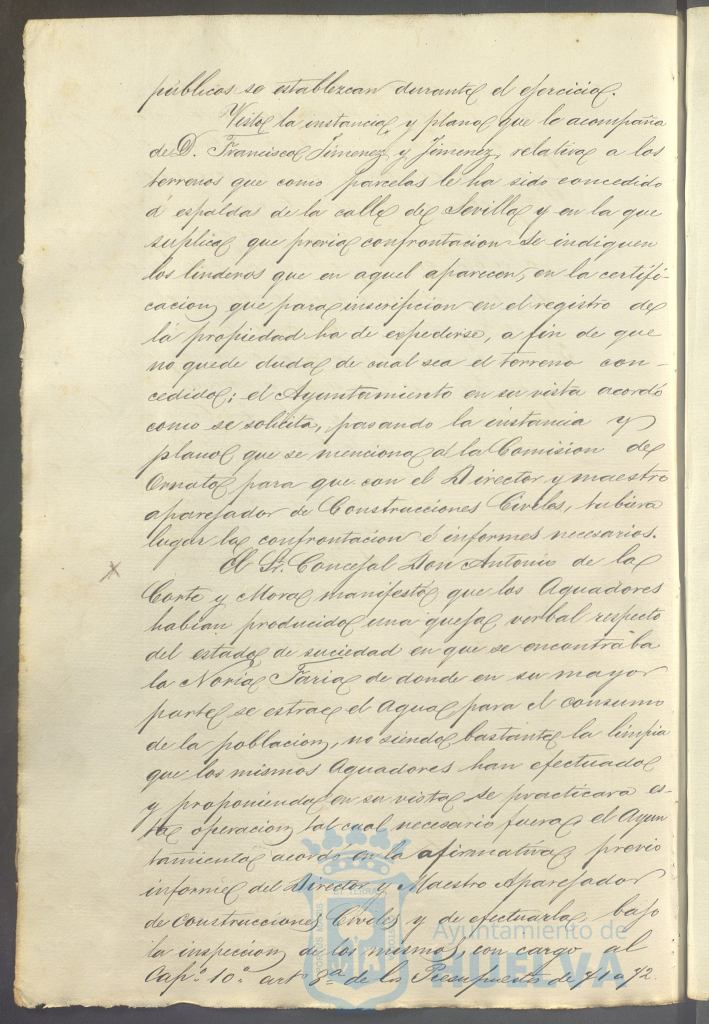 públicos se establezcan durante el ejercicio.
Vista la instancia y plano que le acompaña
de D. Francisco Jimenez y Jimenez, relativa a los
terrenos que como parcelas le ha sido concedido
á espaldas de la calle de Sevilla y en la que
suplica que previa confrontacion se indiquen
los linderos que en aquel aparecen, en la certifi-
cacion que para inscripcion en el registro de
la propiedad ha de expedirse, a fin de que
no quede duda de cual sea el terreno con-
cedido; el Ayuntamiento en su vista acordó
como se solicita, pasando la instancia y
plano que se menciona á la Comision de
Ornato para que con el Director y maestro
aparejador de Construcciones Civiles, tubiera
lugar la confrontacion é informes necesarios.
El Sr. Concejal Don Antonio de la
Corte y Mora manifestó que los Aguadores
habian producido una queja verbal respecto
del estado de suciedad en que se encontraba
la Noria Faria de donde en su mayor
parte se estrae el Agua para el consumo
de la poblacion, no siendo bastante la limpia
que los mismos Aguadores han efectuado
y proponiendo en su vista se practicara es-
ta operacion tal cual necesario fuera, el Ayun
tamiento acordó en la afirmativa previo
informe del Director y Maestro Aparejador
de Construcciones Civiles y de efectuarla bajo
la inspeccion de los mismos, con cargo al
Cap.º 10.º art 8.º de los Presupuestos de 71 a 72.
Ayuntamiento de
HUELVA